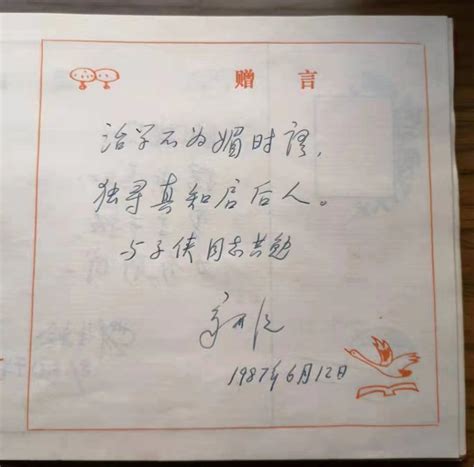 赠言
治学不为媚时谔,
独寻真知启后人。
与子侠同志共勉
1987年6月12日